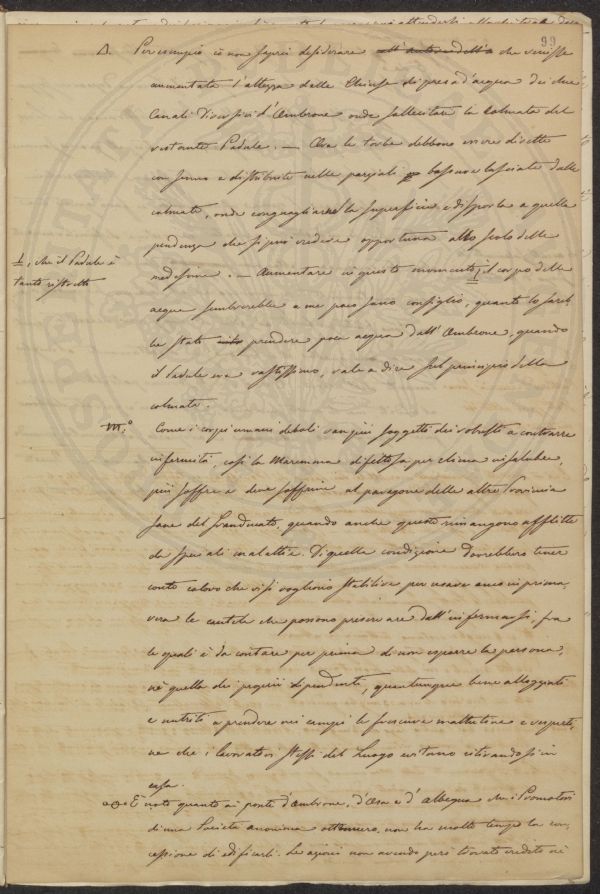 99
D. Per esempio io non saprei desiderare che venisse
aumentata l'altezza delle Chiuse di presa d'acqua dei due
Canali Diversivi d'Ombrone onde sollecitare la colmata del
restante Padule. — Ora le torbe debbono essere dirette
con senno e distribuite nelle parziali bassure lasciate dalle
colmate, onde conguagliarne la superficie e disporla a quella
pendenza che si può credere opportuna allo scolo delle
medesime. — Aumentare in questo momento 1, il corpo delle
1, che il Padule è
tanto ristretto
acque sembrerebbe a me poco sano consiglio, quanto lo sareb
be stato prendere poca acqua dall'Ombrone, quando
il Padule era vastissimo, vale a dire sul principio della
colmata.
Come i corpi umani deboli van più soggetti dei robusti a contrarre
infermità, così la Maremma difettosa per clima insalubre,
più soffre e deve soffrire al paragone delle altre Provincie
sane del Granducato, quando anche queste rimangono afflitte
da speciali malattie. Di quella condizione dovrebbero tener
conto coloro che vi si vogliono stabilire per usare anco in prima,
vera le cautele che possono preservare dall'infermarsi, fra
le quali è da contare per prima di non esporre la persona,
nè quella dei proprii dipendenti, quantunque bene alloggiati
e nutriti a prendere nei campi le frescure mattutine e vesperti,
ne che i lavoratori stessi del luogo evitano ritirandosi in
casa.
È noto quanto ai ponti d'Ombrone, d'Osa e d'Albegna che i Promotori
di una Società anonima ottennero, non ha molto tempo la con,
cessione di edificarli. Le azioni non avendo però trovato credito nè